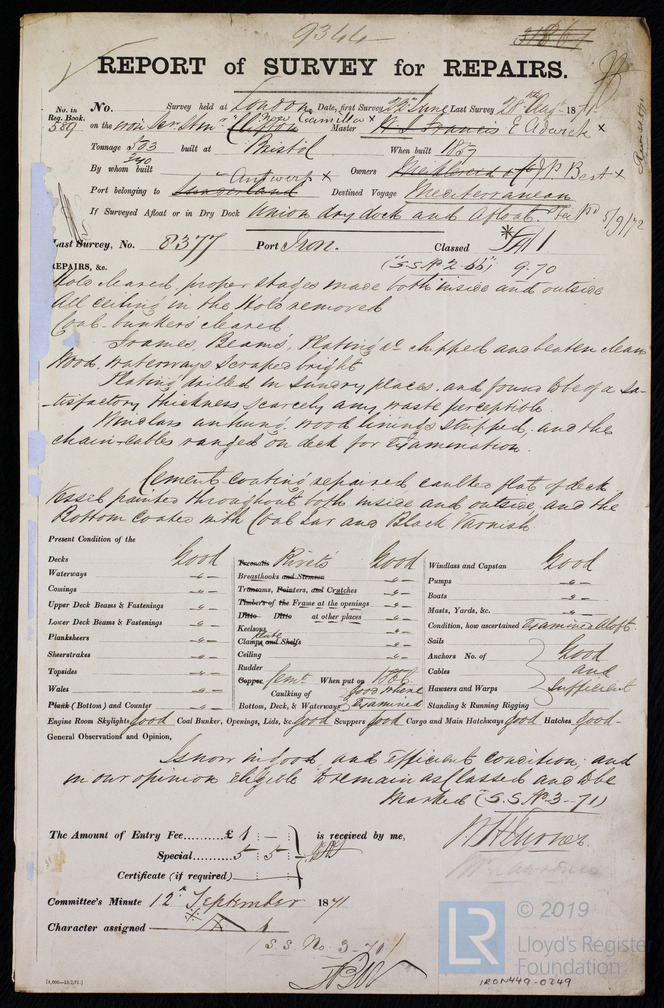 9344
REPORT of SURVEY for REPAIRS.
No. in Reg. Book. 589
No. Survey held at London Date, first Survey 22nd June Last Survey 28th Augt 1871
on the Iron Scr Stmr Clifton now Camilla × Master Francis E Adwick ×
Tonnage 503 340 built at Bristol When built 1859
By whom built Owners J P Best ×
Port belonging to Sunderland Antwerp × Destined Voyage Mediterranean
If Surveyed Afloat or in Dry Dock Union dry dock and Afloat. 5/9/72
Last Survey, No. 8377 Port Iron. Classed A 1
REPAIRS, &c. (S.S. No 2-66) 9.70
Hold cleared, proper stages made both inside and outside
All ceiling in the Hold removed
Coal-bunkers cleared
Frames, Beams, Plating &c chipped and beaten clean
Wood waterways scraped bright
Plating drilled in sundry places, and found to be of a sa-
-tisfactory thickness, scarcely any waste perceptible.
Windlass unhung, wood linings stripped, and the
chain-cables ranged on deck for Examination.
Cement coating repaired caulked flat of deck
Vessel painted throughout both inside and outside, and the
Bottom coated with Coal Tar and Black Varnish.
Present Condition of the
Decks Good
Waterways -"-
Comings -"-
Upper Deck Beams & Fastenings -"-
Lower Deck Beams & Fastenings -"-
Planksheers -"-
Sheerstrakes -"-
Topsides -"-
Wales -"-
Plank (Bottom) and Counter -"-
Treenails Rivets Good
Breasthooks and Stemson -"-
Transoms, Pointers, and Crutches -"-
Timbers of the Frame at the openings -"-
Ditto Ditto at other places -"-
Keelsons -"-
Clamps and Shelfs -"-
Ceiling -"-
Rudder -"-
Copper Cemt When put on 1866
Caulking of Bottom, Deck, & Waterways good where Examined
Windlass and Capstan Good
Pumps -"-
Boats -"-
Masts, Yards, &c. -"-
Condition, how ascertained Examined Aloft.
Sails
Anchors No. of
Cables
Hawsers and Warps
Standing & Running Rigging
Good and Sufficient
Engine Room Skylights good Coal Bunker, Openings, Lids, &c. good Scuppers good Cargo and Main Hatchways good Hatches good
General Observations and Opinion,
Is now in good and Efficient condition; and
in our opinion eligible to remain as Classed and to be
Marked (S.S. No 3-71)
The Amount of Entry Fee......... £ 1 : - is received by me,
Special......... 5 : 5 : -
Certificate (if required)
P. H. Turner.
Committee's Minute 12th September 1871
Character assigned A 1
(S.S. No. 3-71)
[4,000—13/2/71.]
LR
© 2019
Lloyd's Register
Foundation
IRON449-0249